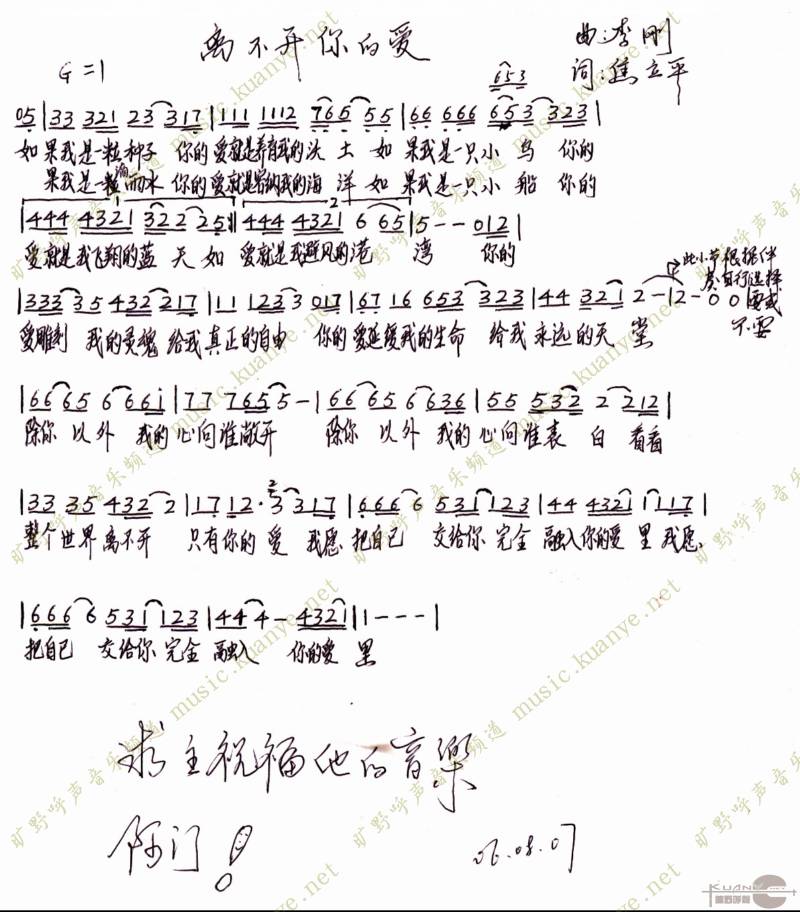 离不开你的爱
曲:李刚
G=1
词:焦立平
653
05|33 321 23 317|111 1112 765 55|66 666 653 323|
如 果我是一粒种子 你的爱就是养育我的沃 土 如 果我是一只小 鸟 你的
果我是一滴雨水 你的爱就是容纳我的海 洋 如 果我是一只小 船 你的
|444 4321 322 225:||444 4321 6 65|5--012|
爱就是我飞翔的蓝 天 如 爱就是我避风的港 湾 你的
此小节根据伴奏自行选择要或不要
|333 35 432 217|11 123 3 017|67 16 653 323|44 321 2-|2-00|
爱雕刻 我的灵魂 给我 真正的自由 你的 爱延续我的生命 给我 永远的天 堂
|66 65 6 661|77 765 5-|66 65 6 636|55 532 2 212|
除你 以外 我的心向谁敞开 除你 以外 我的心向谁表 白 看看
|33 35 432 2|17 12·3 317|666 6 531 123|44 4321 1 117|
整个世界离不开 只有你的爱 我愿 把自己 交给你 完全 融入你的爱 里 我愿
|666 6 531 123|44 4- 4321||1---|
把自己 交给你 完全 融入 你的爱 里
求主祝福他的音樂
阿门!
06.08.07
旷野呼声音乐频道 music.kuanye.net
KUANYE
旷野呼声